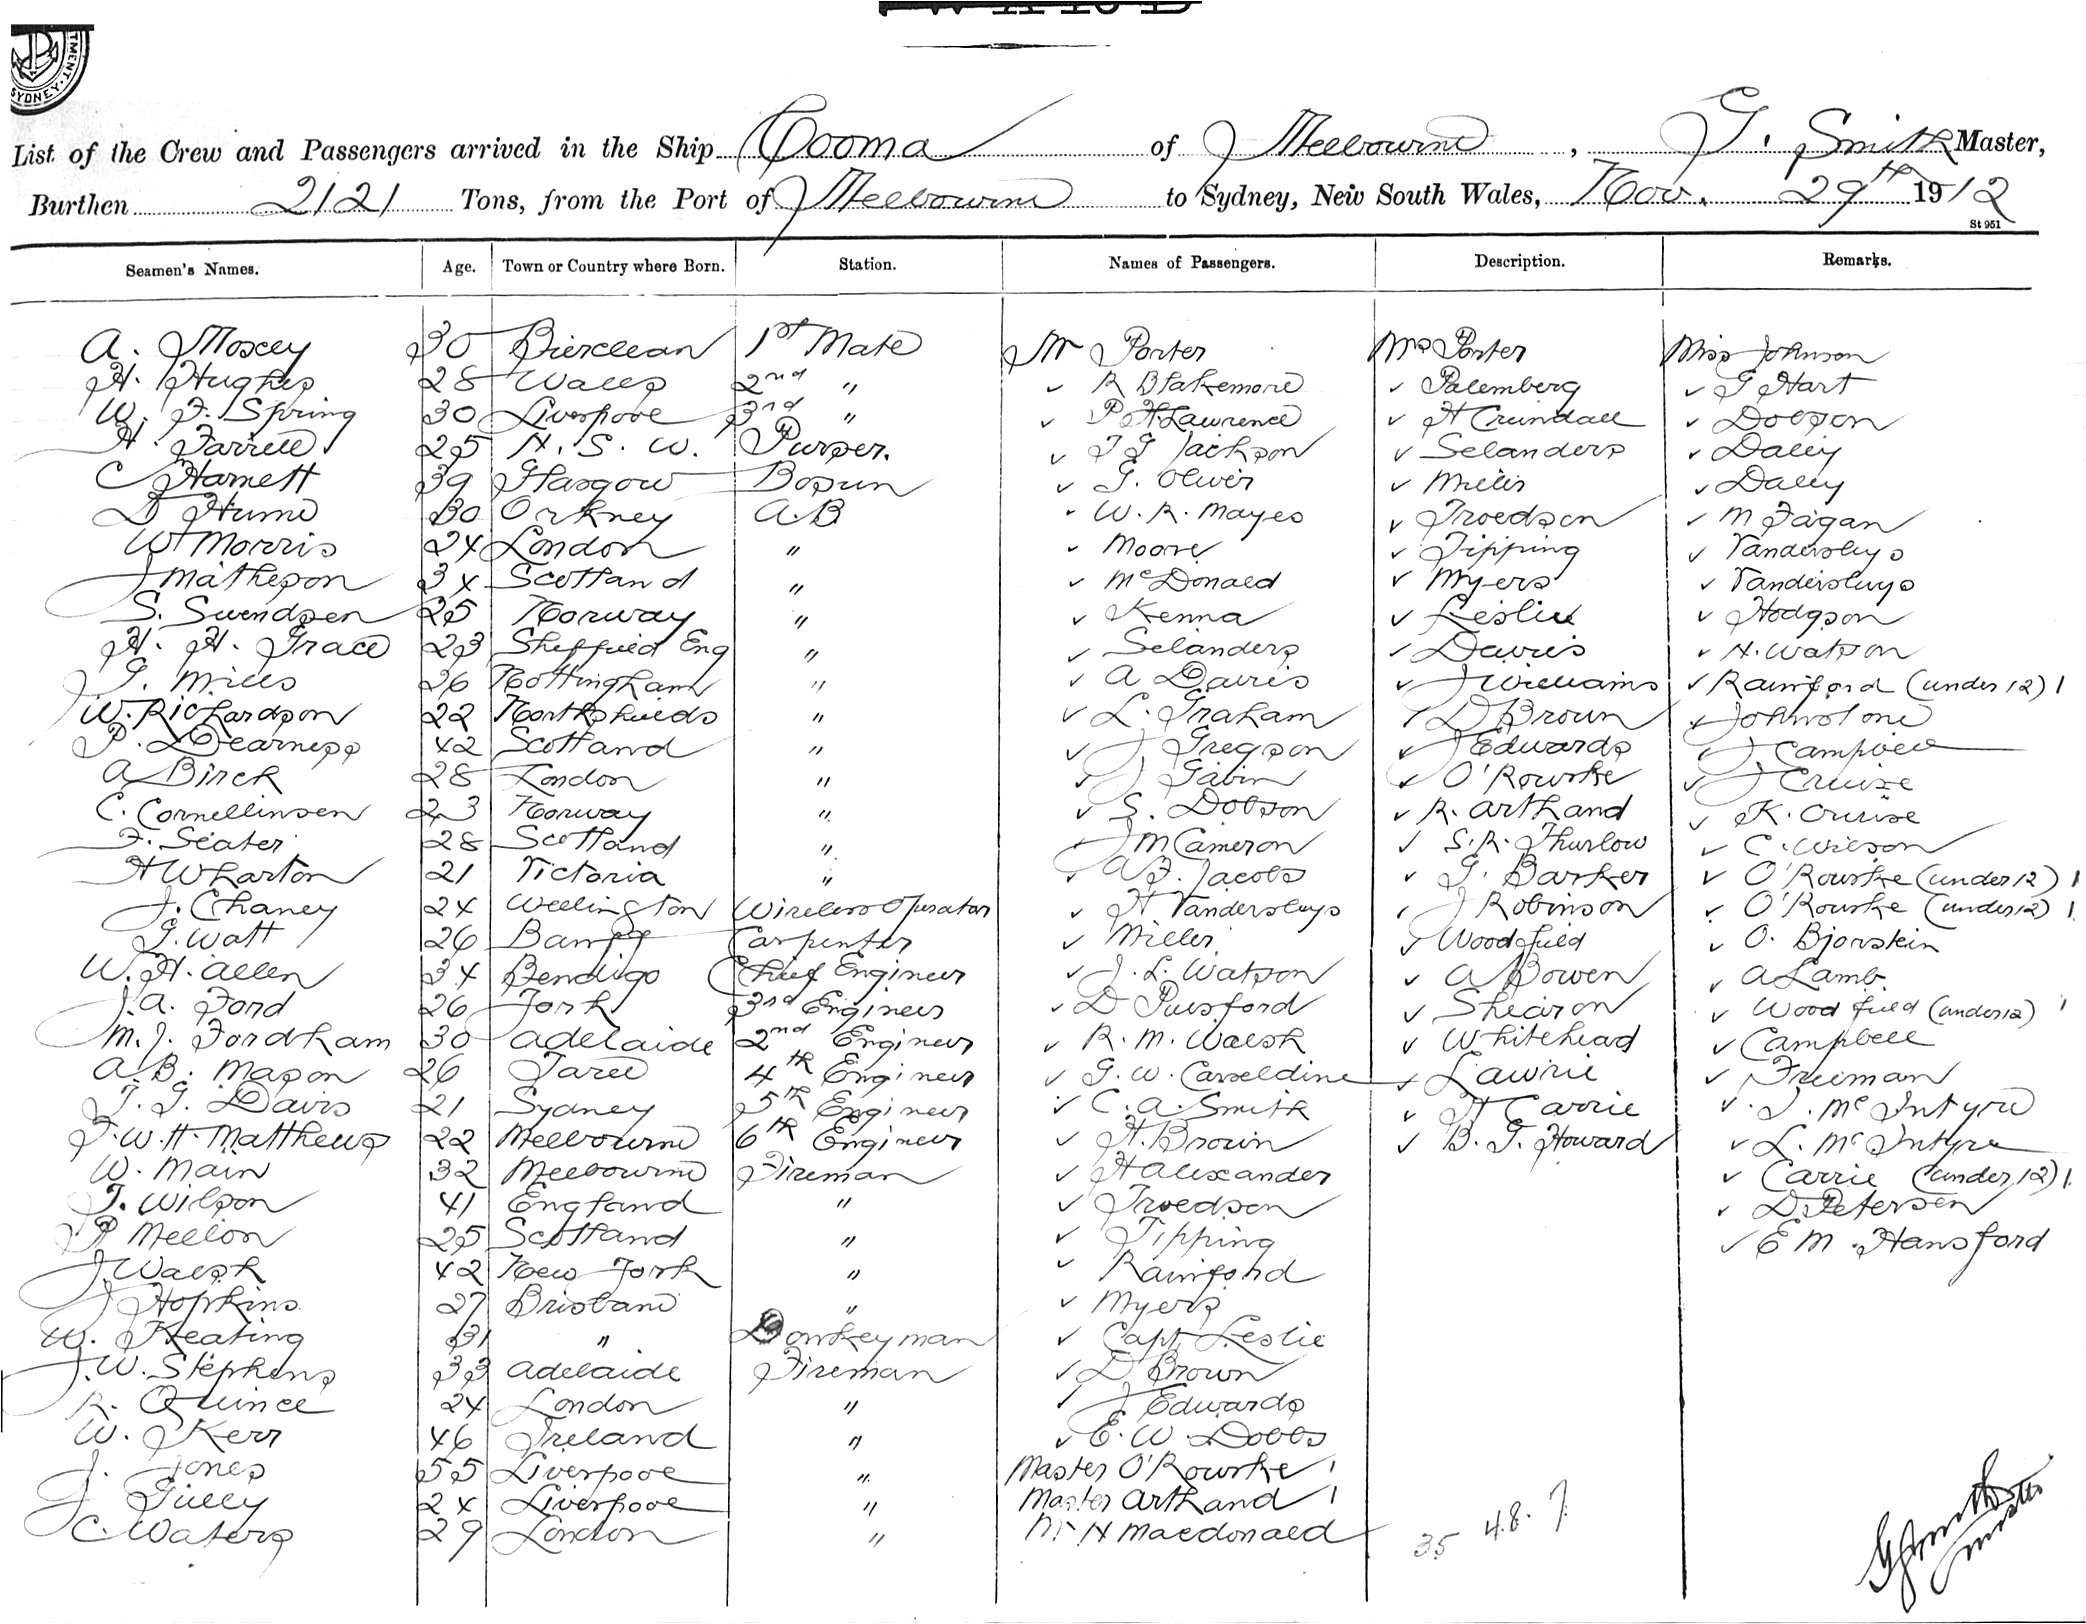 TMENT. SYDNEY.
List of the Crew and Passengers arrived in the Ship Cooma of Melbourne, G. Smith Master,
Burthen 2121 Tons, from the Port of Melbourne to Sydney, New South Wales, Nov. 29th 1912
St 951
Seamen's Names. Age. Town or Country where Born. Station. Names of Passengers. Description. Remarks.
A. Moxey 30 1st Mate Mr Porter Mrs Porter Miss Johnson
H. Hughes 28 Wales 2nd " ✓ R Blakemore ✓ Palemberg ✓ G Hart
W. F. Spring 30 Liverpool 3rd " ✓ P H Lawrence ✓ H Crundall ✓ Dobson
H. Farrell 25 N. S. W. Purser. ✓ T G Jackson ✓ Selanders ✓ Daley
C Harnett 39 Glasgow Bosun ✓ G. Oliver ✓ Miller ✓ Daley
D Hume 30 Orkney A.B ✓ W. R. Mayes ✓ Troedson ✓ M Fagan
W Morris 24 London " ✓ Moore ✓ Tipping ✓ Vandersluys
J Matheson 34 Scotland " ✓ McDonald ✓ Myers ✓ Vandersluys
S. Swendsen 25 Norway " ✓ Kenna ✓ Leslie ✓ Hodgson
H. H. Grace 23 Sheffield Eng " ✓ Selanders ✓ Davies ✓ H. Watson
G. Mills 26 Nottingham " ✓ A Davis ✓ J Williams ✓ Rainford (under 12) 1
W. Richardson 22 Northshields " ✓ L. Graham ✓ D Brown ✓ Johnstone
P. Dearness 42 Scotland " ✓ J Gregson ✓ J Edwards ✓ J Campbell
A Birck 28 London " ✓ J Gabin ✓ O'Rourke ✓ J Cruise
C. Cornellinsen 23 Norway " ✓ S. Dobson ✓ R. Arthand ✓ K. Cruise
F. Slater 28 Scotland " ✓ J M Cameron ✓ S. R. Thurlow ✓ C. Wilson
H Wharton 21 Victoria " ✓ A. J. Jacobs ✓ G. Barker ✓ O'Rourke (under 12) 1
J. Chaney 24 Wellington Wireless Operator ✓ H Vandersluys ✓ J Robinson ✓ O'Rourke (under 12) 1
G. Watt 26 Banff Carpenter ✓ Miller ✓ Woodfield ✓ O. Bjorstein
W. H. Allen 34 Bendigo Chief Engineer ✓ J. L. Watson ✓ A Bowen ✓ A Lamb
J. A. Ford 26 York 3rd Engineer ✓ D Pulsford ✓ Shearon ✓ Woodfield (under 12) 1
M. J. Fordham 30 Adelaide 2nd Engineer ✓ R. M. Walsh ✓ Whitehead ✓ Campbell
A. B. Mason 26 Taree 4th Engineer ✓ G. W. Casseldine ✓ Lawrie ✓ Freeman
T. G. Davis 21 Sydney 5th Engineer ✓ C. A. Smith ✓ H Carrie ✓ J. McIntyre
F. W. H. Matthews 22 Melbourne 6th Engineer ✓ H. Brown ✓ B. G. Howard ✓ L. McIntyre
W. Main 32 Melbourne Fireman ✓ H Alexander ✓ Carrie (under 12) 1
T. Wilson 41 England " ✓ Troedson ✓ D. Petersen
P Mellon 25 Scotland " ✓ Tipping ✓ E M. Hansford
J Walsh 42 New York " ✓ Rainford
J Hopkins 27 Brisbane " ✓ Myers
W. Keating 31 " Donkeyman ✓ Capt. Leslie
J. W. Stephens 33 Adelaide Fireman ✓ D Brown
R. Quince 24 London " ✓ J Edwards
W. Kerr 46 Ireland " ✓ E. W. Dobbs
J. Jones 55 Liverpool " Master O'Rourke 1
J. Gully 24 Liverpool " Master Arthand 1
C. Waters 29 London " Mr N Macdonald 35 48. 7.
G Smith Master